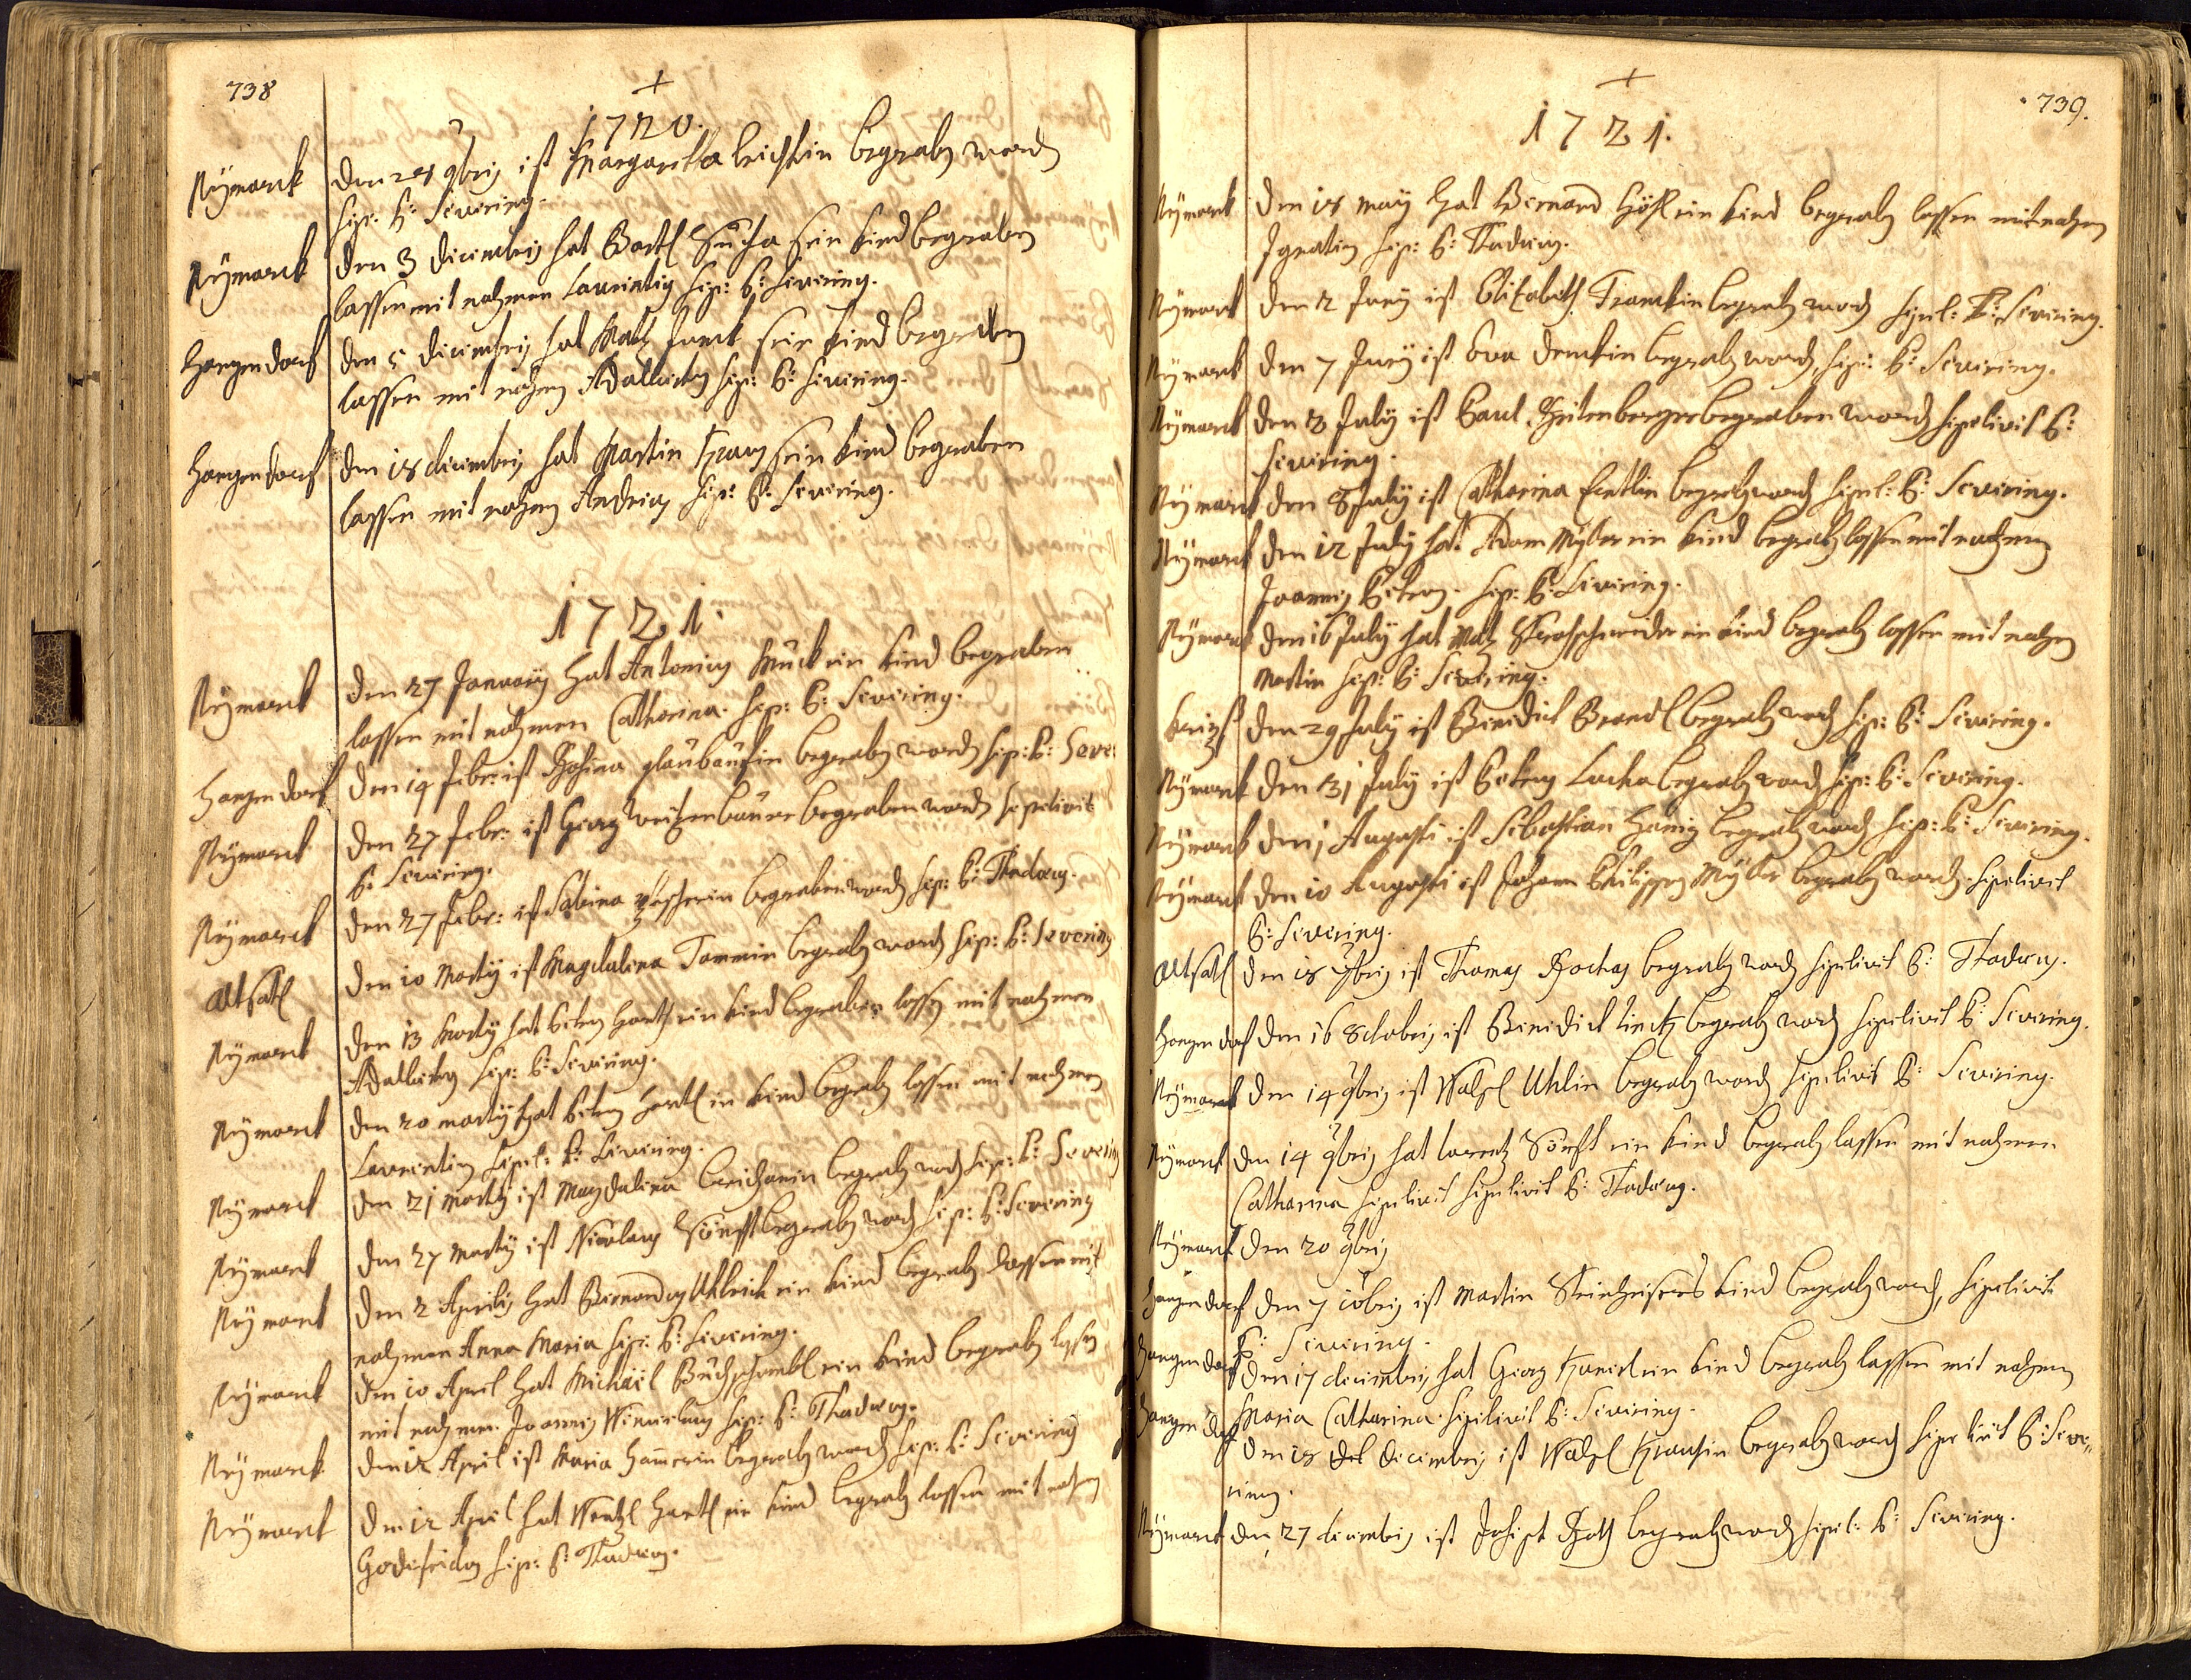 738
+
1720.
Nymarck den 28 9bris ist Margaretha begraben worden
sep: P: Severing.
Nymarck den 3 Decembris hat Bartl Sucha sein kind begraben
lassen mit nahmen Laurentius sep: P: Severing.
Hangendorf den 5 Decembris hat Math Junck sein kind begraben
lassen mit nahmen Adalbertus sep: P: Severing.
Hangendorf den 18 decembris hat Martin Kraus sein kind begraben
lassen mit nahmen Andreas sep: P: Severing.
1721.
Nymarck den 27 January hat Antonius Muck ein kind begraben
lassen mit nahmen Catharina. sep: P: Severing.
Hangendorf den 14 Febr: ist Rosina begraben worden sep: P: Seve:
Nymarck den 27 Febr: ist Georg begraben worden sepelivit
P: Severing.
Nymarck den 27 Febr: ist Sabina begraben worden sep: P: Thadaeus.
Altsatl den 10 Marty ist Magdalena Tammin begraben worden sep: P: Severing
Nymarck den 13 Marty hat Petrus Hartl ein kind begraben lassen mit nahmen
Adalbertus sep: P: Severing.
Nymarck den 20 marty hat Petrus Hartl ein kind begraben lassen mit nahmen
Laurentius sepel: P: Severing.
Nymarck den 21 marty ist Magdalena begraben worden sep: P: Severing
Nymarck den 27 Marty ist Nicolaus begraben worden sep: P: Severing
Nymarck den 2 Aprilis hat Bernardus Uhlrich ein kind begraben lassen mit
nahmen Anna Maria sep: P: Severing.
Nymarck den 10 April hat Michäel ein kind begraben lassen
mit nahmen Joannes Wenceslaus sep: P: Thadaeus.
Nymarck den 12 April ist Maria Hamerin begraben worden sep: P: Severing
Nymarck den 12 April hat Wentzl Hartl ein kind begraben lassen mit nahmen
Godefridus sep: P: Thadaeus.
739.
+
1721.
Nymarck den 18 May hat Bernard ein kind begraben lassen mit nahmen
Ignatius sep: P: Thadaeus.
Nymarck den 2 Juny ist Elisabeth begraben worden sepel: P: Severing.
Nymarck den 7 Juny ist Eva begraben worden, sep: P: Severing.
Nymarck den 3 July ist Paul begraben worden sepelivit P:
Severing.
Nymarck den 8 July ist Catharina begraben worden sepel: P: Severing.
Nymarck den 12 July hat Adam Myller ein kind begraben lassen mit nahmen
Joannes Petrus. sep: P: Severing.
Nymarck den 16 July hat Math ein kind begraben lassen mit nahmen
Martin sep: P: Severing.
den 29 July ist Benedict Brandl begraben worden sep: P: Severing.
Nymarck den 31 July ist Petrus Lucha begraben worden sep: P: Severing.
Nymarck den 1 Augusti ist Sebastian Hanig begraben worden sep: P: Severing.
Nymarck den 10 Augusti ist Johann Philippus Myller begraben worden. sepelivit
P: Severing.
Altsatl den 18 7bris ist Thomas Rochas begraben worden sepelivit P: Thadaeus.
Hangendorf den 16 8ctobris ist Benedict begraben worden sepelivit P: Severing.
Nymarck den 14 9bris ist Uhlin begraben worden sepelivit P: Severing.
Nymarck den 14 9bris hat Lorentz ein kind begraben lassen mit nahmen
Catharina sepelivit sepelivit P: Thadaeus.
Nymarck den 20 9bris
Hangendorf den 7 10bris ist Martin kind begraben worden, sepelivit
P: Severing.
Hangendorf den 17 decembris hat Georg ein kind begraben lassen mit nahmen
Maria Catharina. sepelivit P: Severing.
Hangendorf den 18 Decembris ist Krausin begraben worden sepelivit P: Seve,,
ring.
Nymarck den 27 decembris ist Joseph begraben worden sepel: P: Severing.